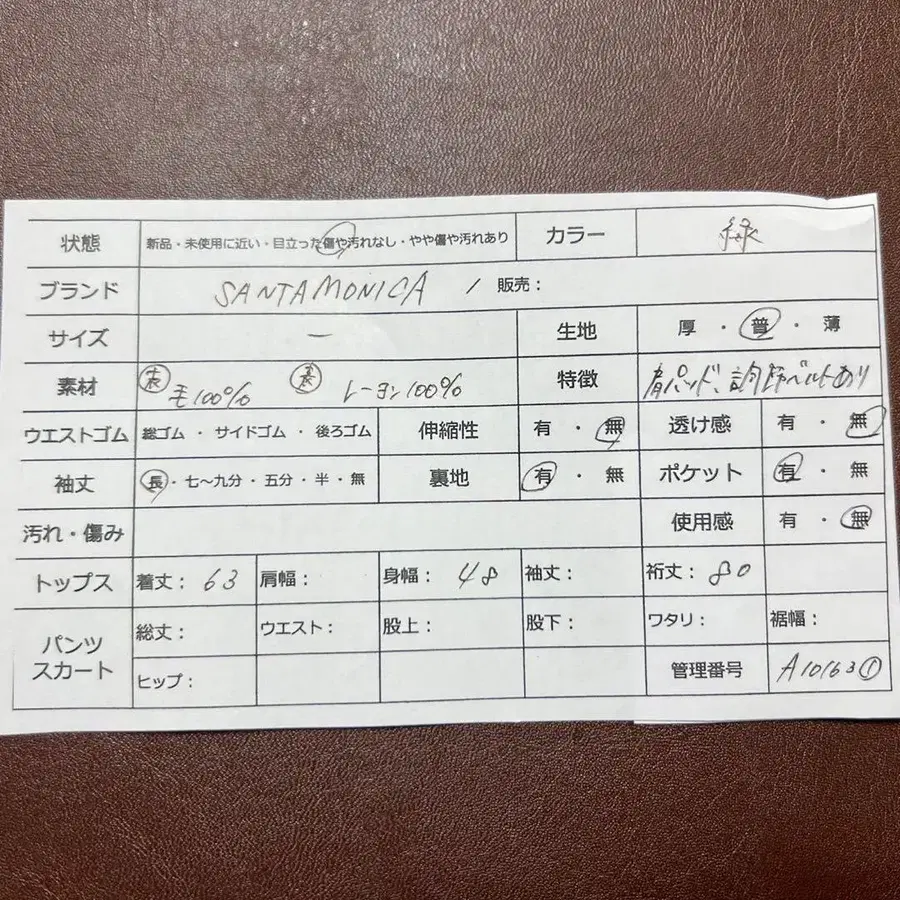 状態 新品・未使用に近い・目立った傷や汚れなし・やや傷や汚れあり カラー 緑
ブランド SANTAMONICA / 販売：
サイズ — 生地 厚・普・薄
素材 表 毛100% 裏 レーヨン100% 特徴 肩パッド、調節ベルトあり
ウエストゴム 総ゴム・サイドゴム・後ろゴム 伸縮性 有・無 透け感 有・無
袖丈 長・七〜九分・五分・半・無 裏地 有・無 ポケット 有・無
汚れ・傷み 使用感 有・無
トップス 着丈：63 肩幅： 身幅：48 袖丈： 裄丈：80
パンツ スカート 総丈： ウエスト： 股上： 股下： ワタリ： 裾幅：
ヒップ： 管理番号 A10163①